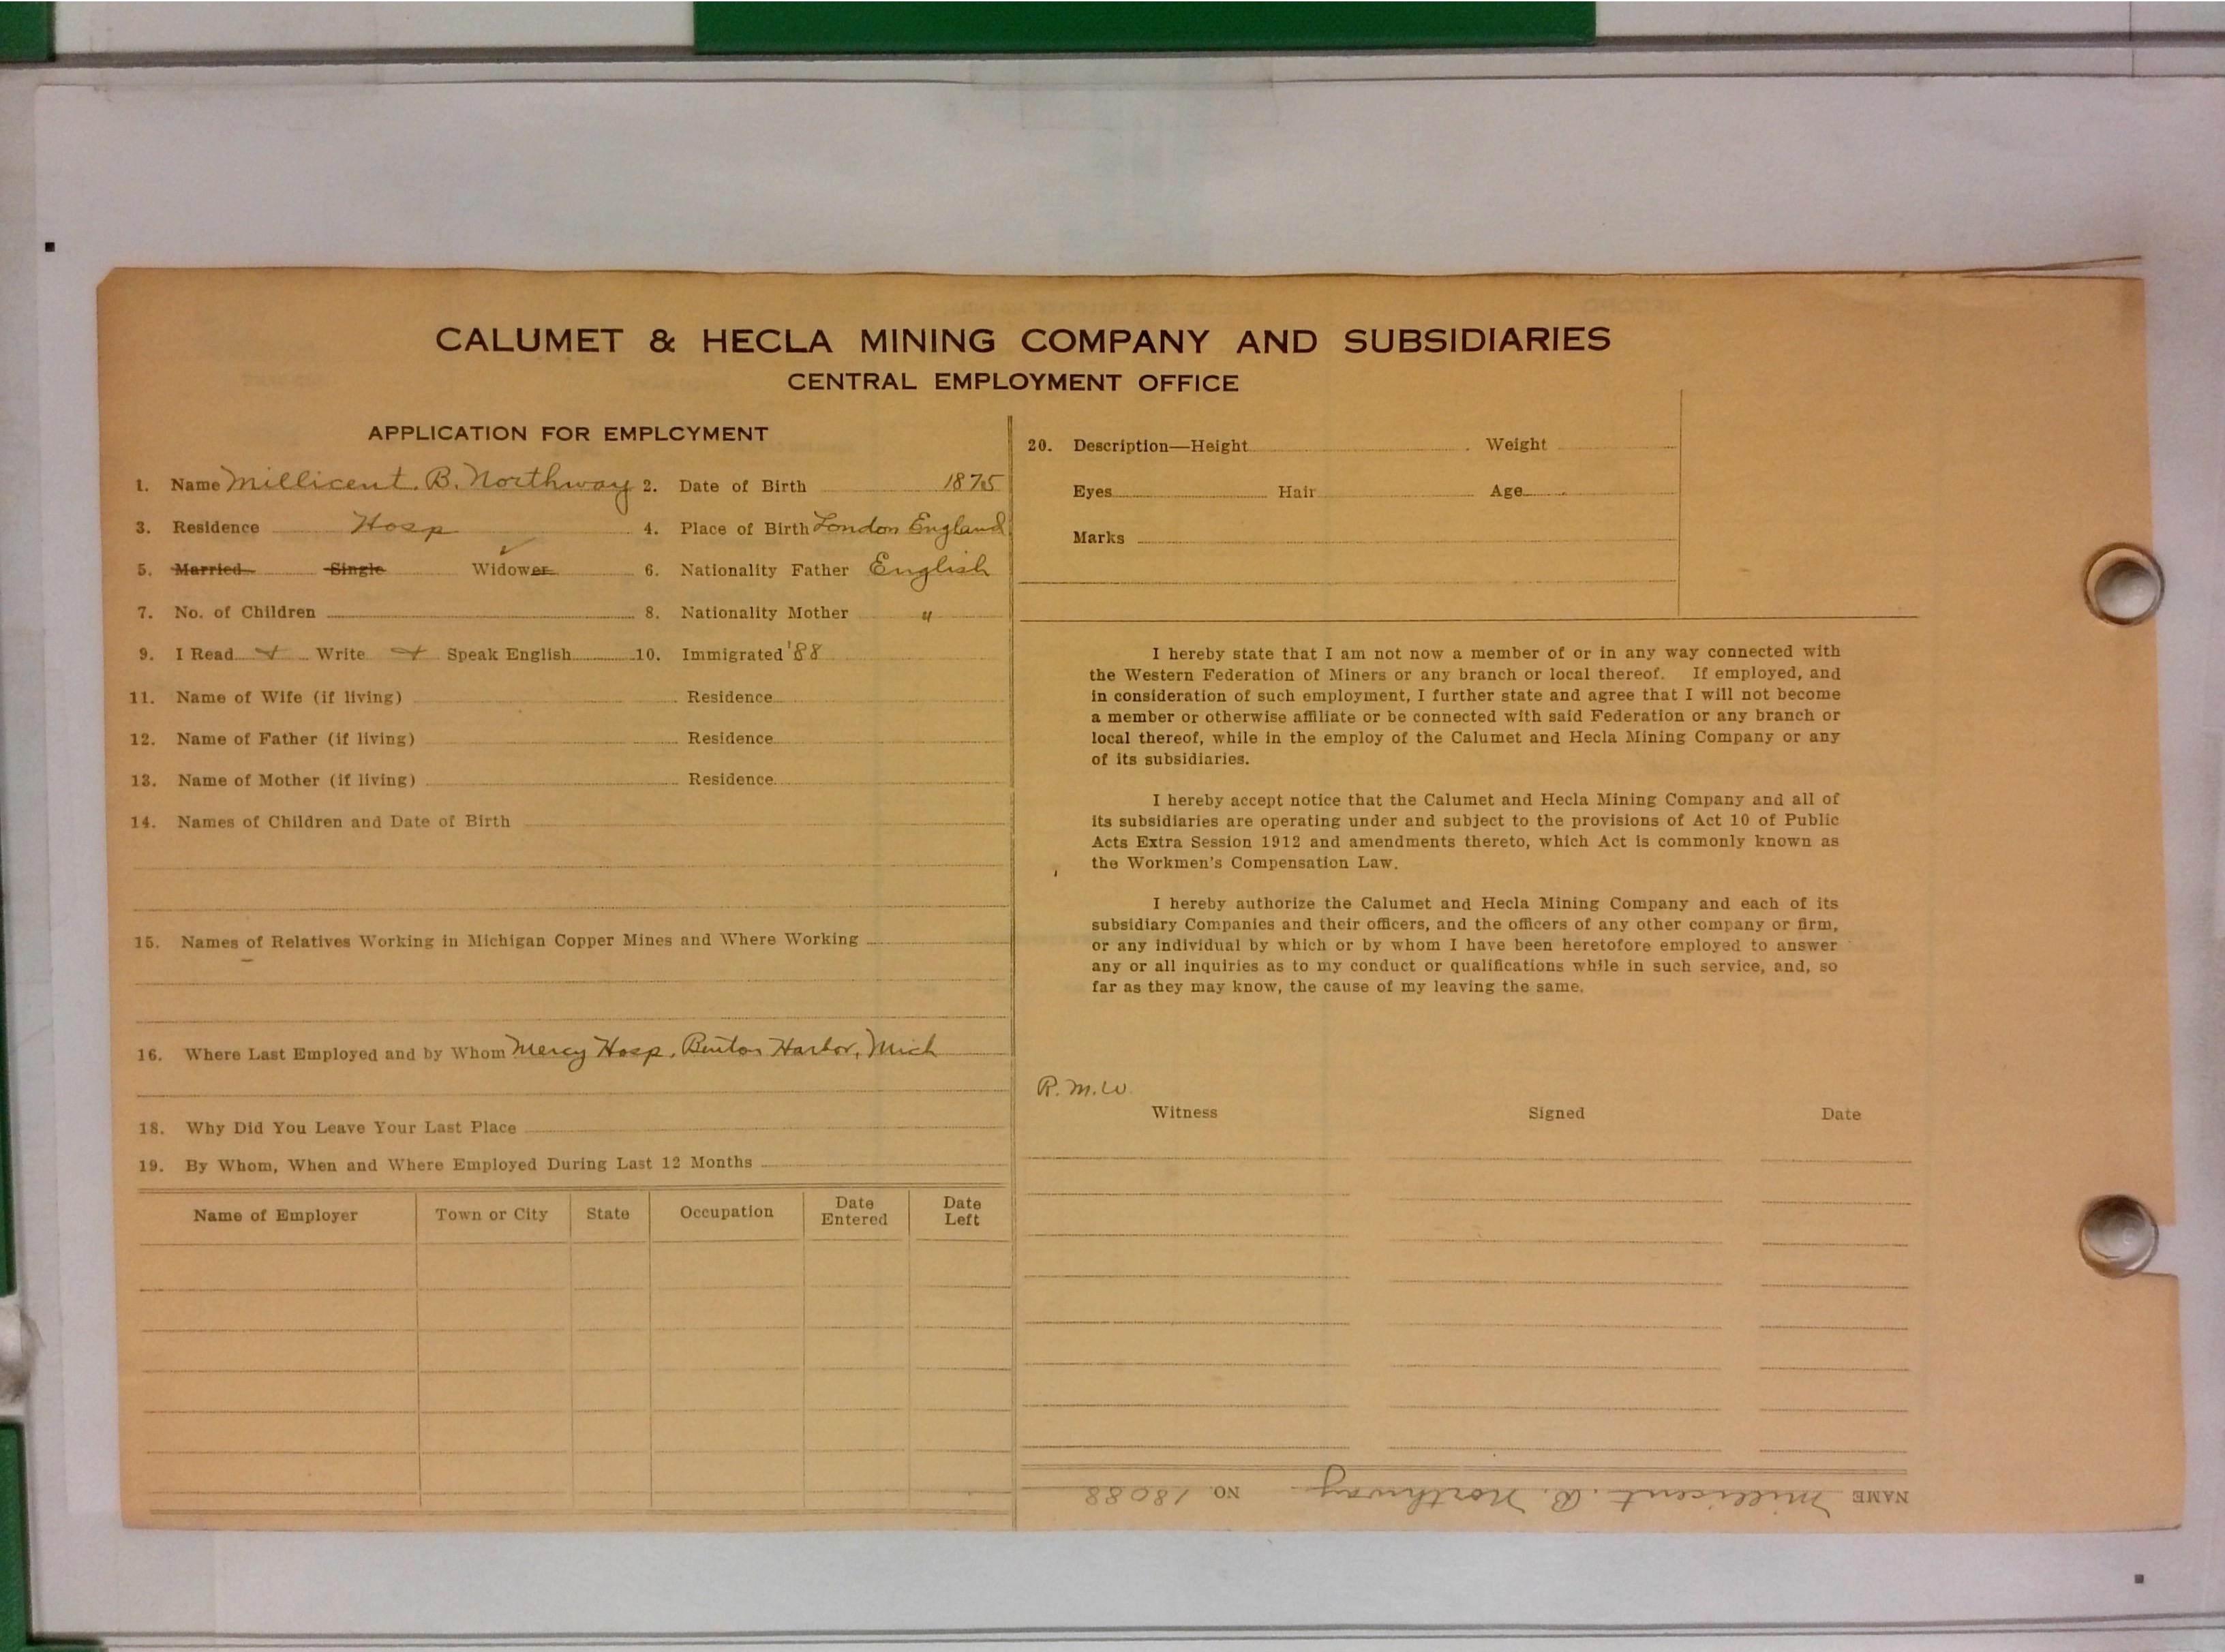 CALUMET & HECLA MINING COMPANY AND SUBSIDIARIES
CENTRAL EMPLOYMENT OFFICE
APPLICATION FOR EMPLOYMENT
1. Name Millicent. B. Northway 2. Date of Birth 1875
3. Residence Hosp 4. Place of Birth London England
5. Married Single Widower 6. Nationality Father English
7. No. of Children 8. Nationality Mother "
9. I Read Write Speak English 10. Immigrated '88
11. Name of Wife (if living) Residence
12. Name of Father (if living) Residence
13. Name of Mother (if living) Residence
14. Names of Children and Date of Birth
15. Names of Relatives Working in Michigan Copper Mines and Where Working
16. Where Last Employed and by Whom Mercy Hosp, Benton Harbor, Mich
18. Why Did You Leave Your Last Place
19. By Whom, When and Where Employed During Last 12 Months
Name of Employer Town or City State Occupation Date Entered Date Left
20. Description—Height Weight
Eyes Hair Age
Marks
I hereby state that I am not now a member of or in any way connected with
the Western Federation of Miners or any branch or local thereof. If employed, and
in consideration of such employment, I further state and agree that I will not become
a member or otherwise affiliate or be connected with said Federation or any branch or
local thereof, while in the employ of the Calumet and Hecla Mining Company or any
of its subsidiaries.
I hereby accept notice that the Calumet and Hecla Mining Company and all of
its subsidiaries are operating under and subject to the provisions of Act 10 of Public
Acts Extra Session 1912 and amendments thereto, which Act is commonly known as
the Workmen's Compensation Law.
I hereby authorize the Calumet and Hecla Mining Company and each of its
subsidiary Companies and their officers, and the officers of any other company or firm,
or any individual by which or by whom I have been heretofore employed to answer
any or all inquiries as to my conduct or qualifications while in such service, and, so
far as they may know, the cause of my leaving the same.
R.M.W.
Witness Signed Date
NAME Millicent. B. Northway NO. 18088